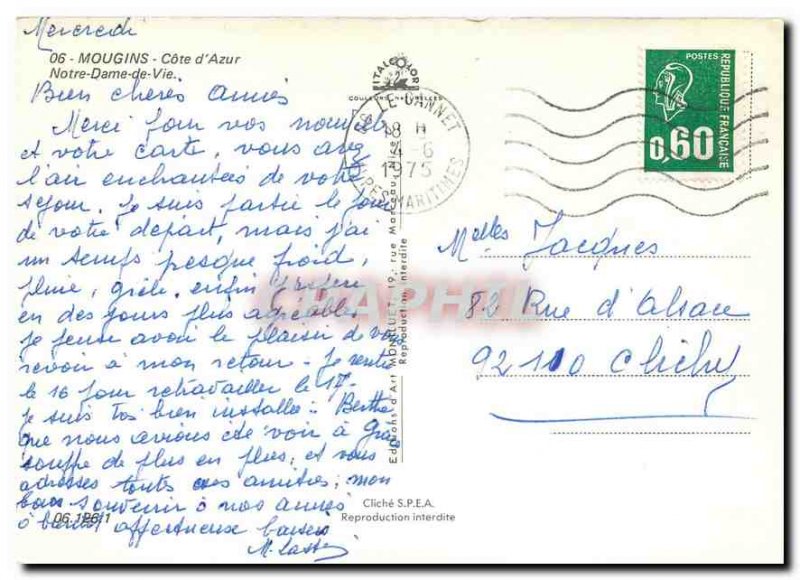 Mercredi
06 - MOUGINS - Côte d'Azur
Notre-Dame-de-Vie.
Bien chères amies
Merci pour vos nouvelles
et votre carte, vous avez
l'air enchantées de votre
séjour. Je suis partie le jour
de votre départ, mais j'ai
un temps presque froid,
pluie, grêle, enfin
en des jours plus agréables
Je pense avoir le plaisir de vous
revoir à mon retour - Je rentre
le 16 pour retravailler le 17
Je suis très bien installée - Berthe
que nous avions été voir à
souffre de plus en plus, et vous
adresses toutes ses amitiés, mon
bon souvenir à nos amies
à bientôt affectueux baisers
06.126.1
ITALCOLOR
LE CANNET
18 H
4-6
1975
ALPES MARITIMES
Editions d'Art MONLUET, 19, rue Marceau
Reproduction interdite
Cliché S.P.E.A.
Reproduction interdite
POSTES
REPUBLIQUE FRANÇAISE
0,60
Melles Jacques
82 Rue d'Alsace
92110 Clichy
CPAPHIL